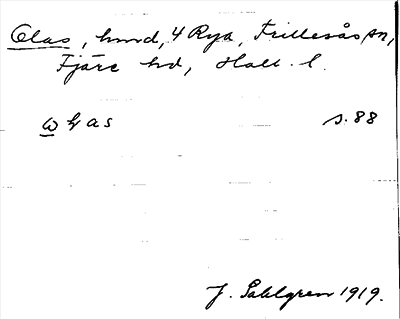 Olas, hmd, 4 Rya, Frillesås sn,
Fjäre hd, Hall. l.
s. 88
J. Sahlgren 1919.